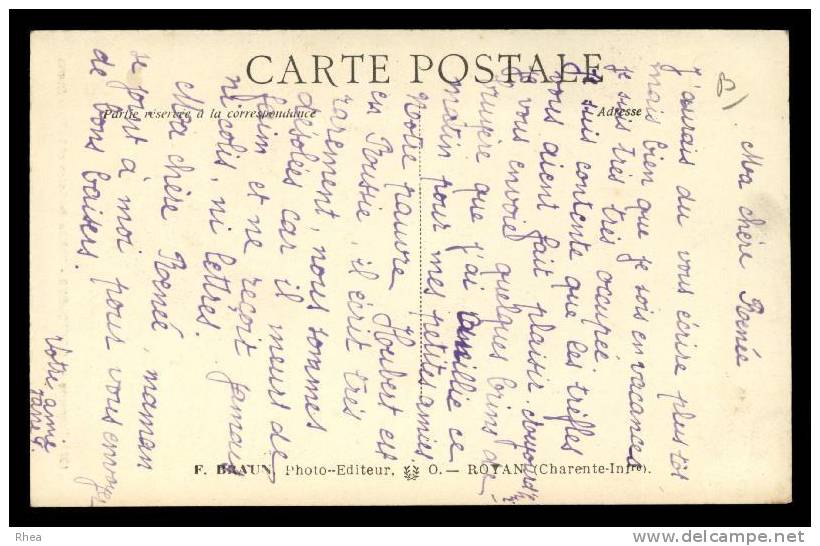 CARTE POSTALE
Partie réservée à la correspondance
Adresse
8)
Ma chère Renée
J'aurais du vous écrire plus tôt
mais bien que je sois en vacances
je suis très très occupée.
Je suis contente que ces trèfles
vous aient fait plaisir. Aujourd'h
je vous envoie quelques brins de
bruyère que j'ai cueillie ce
matin pour mes petites amies
Notre pauvre Houbert est
en Russie, il écrit très
rarement, nous sommes
désolées car il meurt de
faim et ne reçoit jamais
ni colis, ni lettres.
Ma chère Renée, maman
se joint à moi pour vous envoyer
de bons baisers.
Votre amie
F. BRAUN, Photo-Editeur, O.— ROYAN (Charente-Infre).
Rhea
delcampe.net